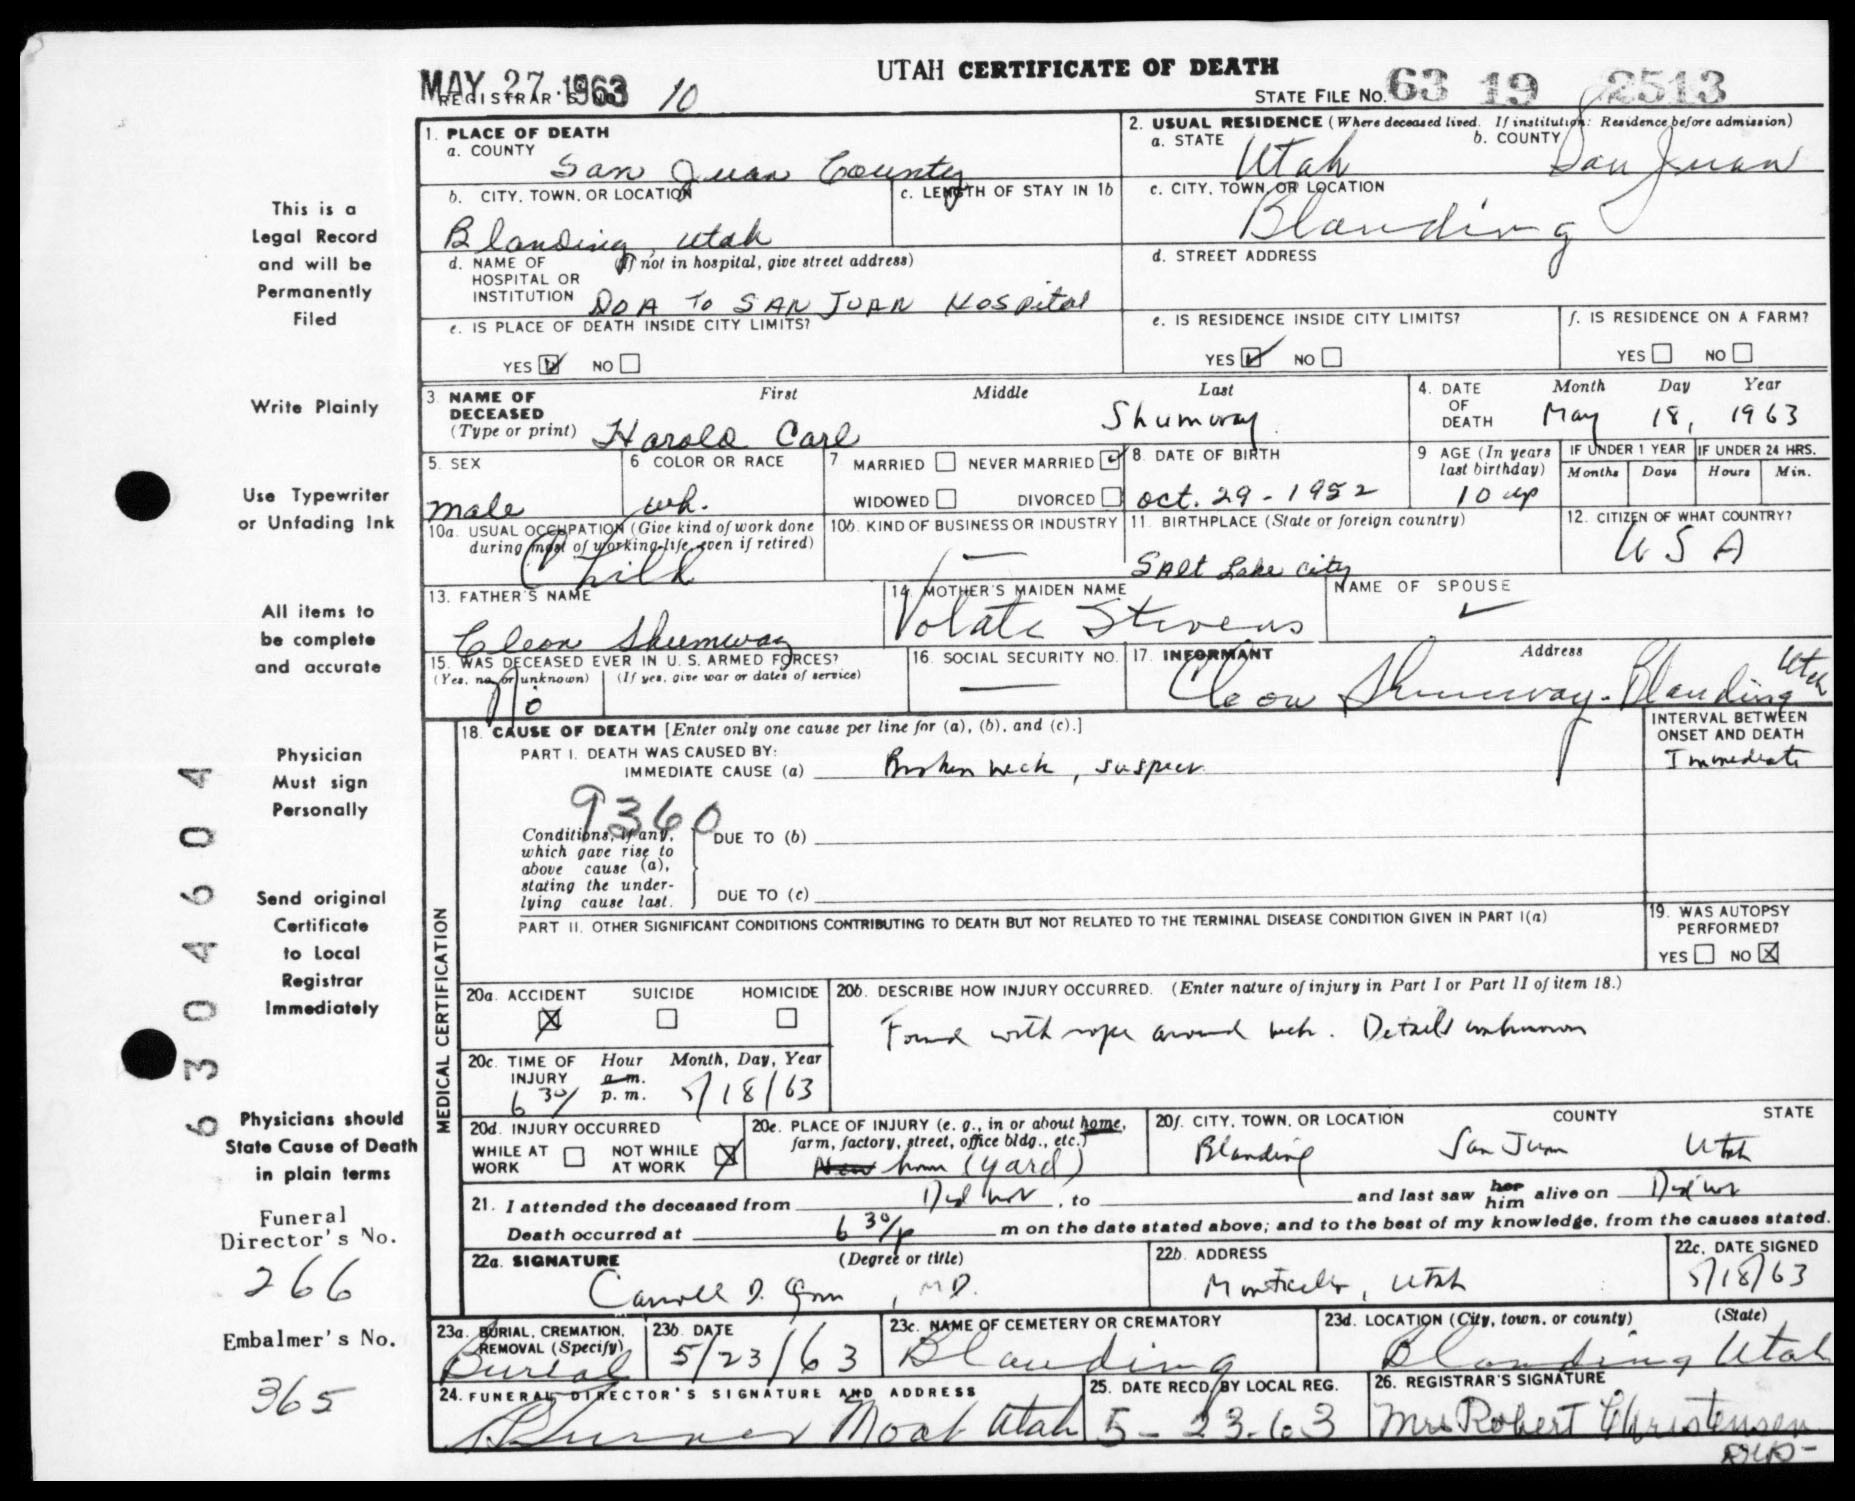 UTAH CERTIFICATE OF DEATH
MAY 27 1963
REGISTRAR'S NO. 10
STATE FILE NO. 63 19 2513
This is a
Legal Record
and will be
Permanently
Filed
Write Plainly
Use Typewriter
or Unfading Ink
All items to
be complete
and accurate
Physician
Must sign
Personally
Send original
Certificate
to Local
Registrar
Immediately
Physicians should
State Cause of Death
in plain terms
Funeral
Director's No.
266
Embalmer's No.
365
6304604
1. PLACE OF DEATH
a. COUNTY San Juan County
b. CITY, TOWN, OR LOCATION Blanding, Utah
c. LENGTH OF STAY IN 1b
d. NAME OF (If not in hospital, give street address)
HOSPITAL OR
INSTITUTION DOA To SAN JUAN Hospital
e. IS PLACE OF DEATH INSIDE CITY LIMITS?
YES NO
2. USUAL RESIDENCE (Where deceased lived. If institution: Residence before admission)
a. STATE Utah b. COUNTY San Juan
c. CITY, TOWN, OR LOCATION Blanding
d. STREET ADDRESS
e. IS RESIDENCE INSIDE CITY LIMITS?
YES NO
f. IS RESIDENCE ON A FARM?
YES NO
3. NAME OF DECEASED (Type or print) First Middle Last
Harold Carl Shumway
4. DATE OF DEATH Month Day Year
May 18, 1963
5. SEX male
6 COLOR OR RACE wh.
7. MARRIED NEVER MARRIED
WIDOWED DIVORCED
8. DATE OF BIRTH oct. 29-1952
9 AGE (In years last birthday) 10
IF UNDER 1 YEAR Months Days
IF UNDER 24 HRS. Hours Min.
10a. USUAL OCCUPATION (Give kind of work done
during most of working life, even if retired)
Child
10b. KIND OF BUSINESS OR INDUSTRY —
11. BIRTHPLACE (State or foreign country) SAlt Lake City
12. CITIZEN OF WHAT COUNTRY? USA
13. FATHER'S NAME Cleon Shumway
14. MOTHER'S MAIDEN NAME Volate Stevens
NAME OF SPOUSE
15. WAS DECEASED EVER IN U. S. ARMED FORCES?
(Yes, no, or unknown) (If yes, give war or dates of service)
No
16. SOCIAL SECURITY NO. —
17. INFORMANT Address
Cleon Shumway - Blanding Utah
MEDICAL CERTIFICATION
18. CAUSE OF DEATH [Enter only one cause per line for (a), (b), and (c).]
PART I. DEATH WAS CAUSED BY:
IMMEDIATE CAUSE (a) Broken neck, suspect
INTERVAL BETWEEN
ONSET AND DEATH
Immediate
9360
Conditions, if any,
which gave rise to
above cause (a),
stating the under-
lying cause last.
DUE TO (b)
DUE TO (c)
PART II. OTHER SIGNIFICANT CONDITIONS CONTRIBUTING TO DEATH BUT NOT RELATED TO THE TERMINAL DISEASE CONDITION GIVEN IN PART I(a)
19. WAS AUTOPSY
PERFORMED?
YES NO
20a. ACCIDENT SUICIDE HOMICIDE
20b. DESCRIBE HOW INJURY OCCURRED. (Enter nature of injury in Part I or Part II of item 18.)
Found with rope around neck. Details unknown
20c. TIME OF INJURY Hour a. m. p. m. Month, Day, Year
6 30/ 5/18/63
20d. INJURY OCCURRED
WHILE AT WORK NOT WHILE AT WORK
20e. PLACE OF INJURY (e. g., in or about home,
farm, factory, street, office bldg., etc.)
home (yard)
20f. CITY, TOWN, OR LOCATION COUNTY STATE
Blanding San Juan Utah
21. I attended the deceased from Did not , to and last saw her him alive on Did not
Death occurred at 6 30/p m on the date stated above; and to the best of my knowledge, from the causes stated.
22a. SIGNATURE (Degree or title)
Carroll D. , MD.
22b. ADDRESS Monticello, Utah
22c. DATE SIGNED 5/18/63
23a. BURIAL, CREMATION,
REMOVAL (Specify)
Burial
23b. DATE 5/23/63
23c. NAME OF CEMETERY OR CREMATORY Blanding
23d. LOCATION (City, town, or county) (State)
Blanding Utah
24. FUNERAL DIRECTOR'S SIGNATURE AND ADDRESS
Moab Utah
25. DATE RECD. BY LOCAL REG. 5-23-63
26. REGISTRAR'S SIGNATURE
Mrs Robert Christensen